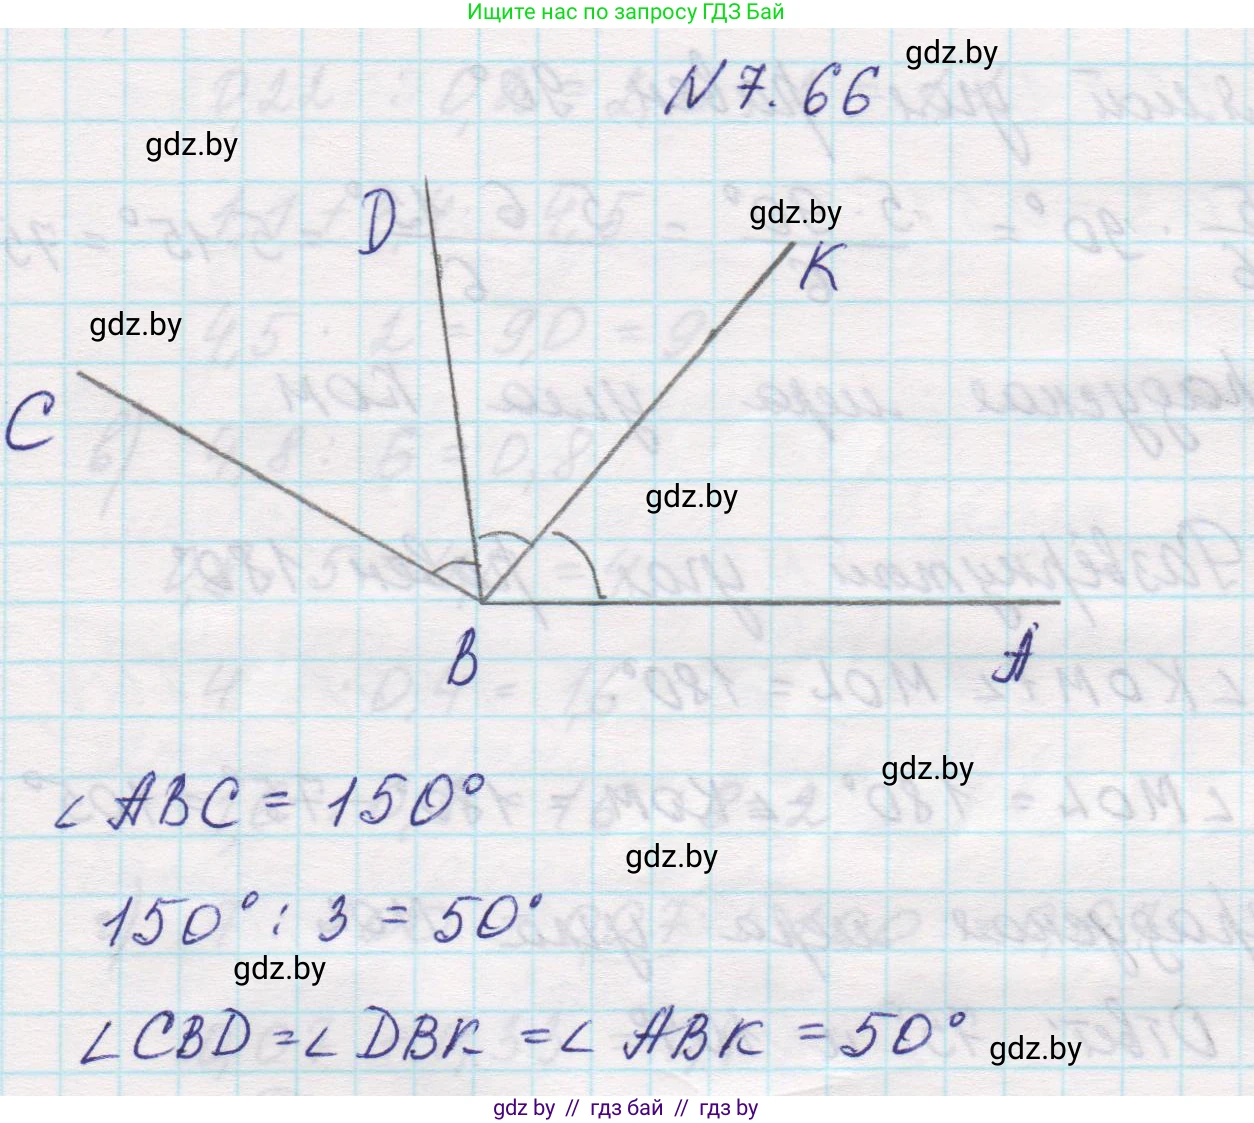 Ищите нас по запросу ГДЗ Бай
N 7.66
gdz.by
gdz.by
D
gdz.by
K
gdz.by
C
gdz.by
B
A
gdz.by
∠ABC = 150°
gdz.by
150° : 3 = 50°
gdz.by
∠CBD = ∠DBK = ∠ABK = 50°
gdz.by
gdz by // гдз бай // гдз by